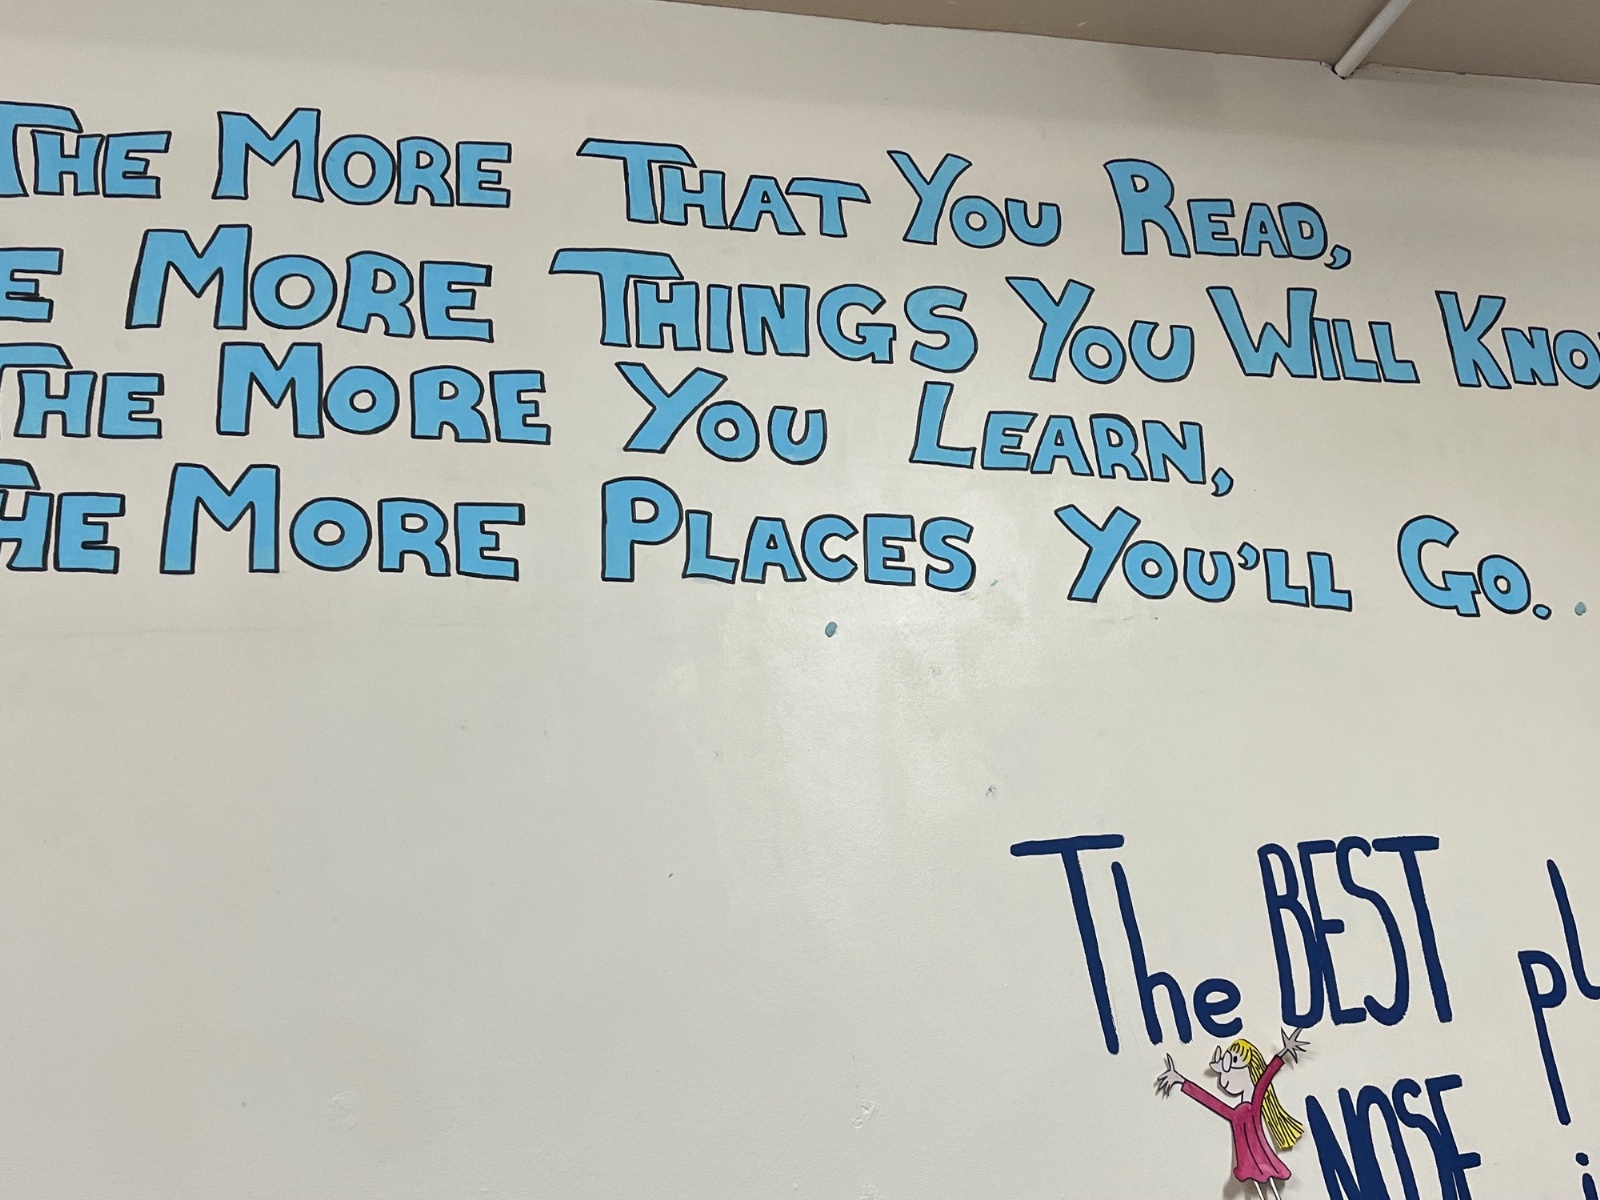 THE MORE THAT YOU READ,
E MORE THINGS YOU WILL KNO
THE MORE YOU LEARN,
THE MORE PLACES YOU'LL GO..
The BEST pl
NOSE i